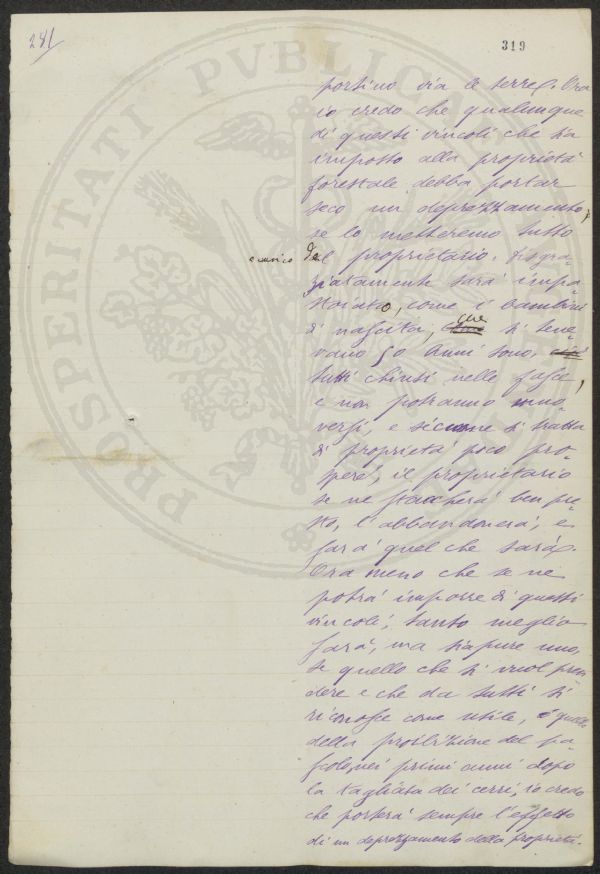 281
319
PROSPERITATI PVBLICAE
portino via le terre. Ora
io credo che qualunque
di questi vincoli che ha
imposto alla proprietà
forestale debba portar
seco un deprezzamento,
se lo metteremo tutto
a carico del proprietario. Disgra-
ziatamente sarà impa-
stoiato, come i bambini
di nascita, che si tene-
vano 50 anni sono,
tutti chiusi nelle fasce,
e non potranno muo-
versi, e siccome si tratta
di proprietà poco pro-
spera, il proprietario
se ne staccherà ben pre-
sto, l'abbandonerà, e
sarà quel che sarà.
Ora meno che se ne
potrà imporre di questi
vincoli, tanto meglio
sarà, ma sia pure uno,
se quello che si vuol pren-
dere e che da tutti si
riconosce come utile, è quello
della proibizione del pa-
scolo, nei primi anni dopo
la tagliata dei cerri, io credo
che porterà sempre l'effetto
di un deprezzamento della proprietà.